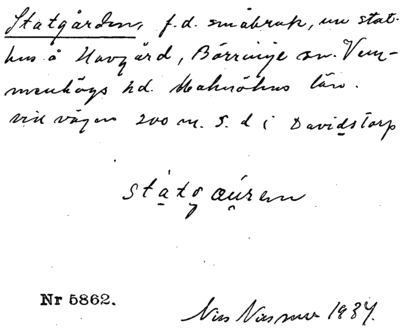 Statgården, f.d. småbruk, nu stat-
hus å Havgård, Börringe sn. Vem-
menhögs hd. Malmöhus län.
vid vägen 200 m. S. d i Davidstorp
státgæ̣uren
Nr 5862.
Nils 1937.